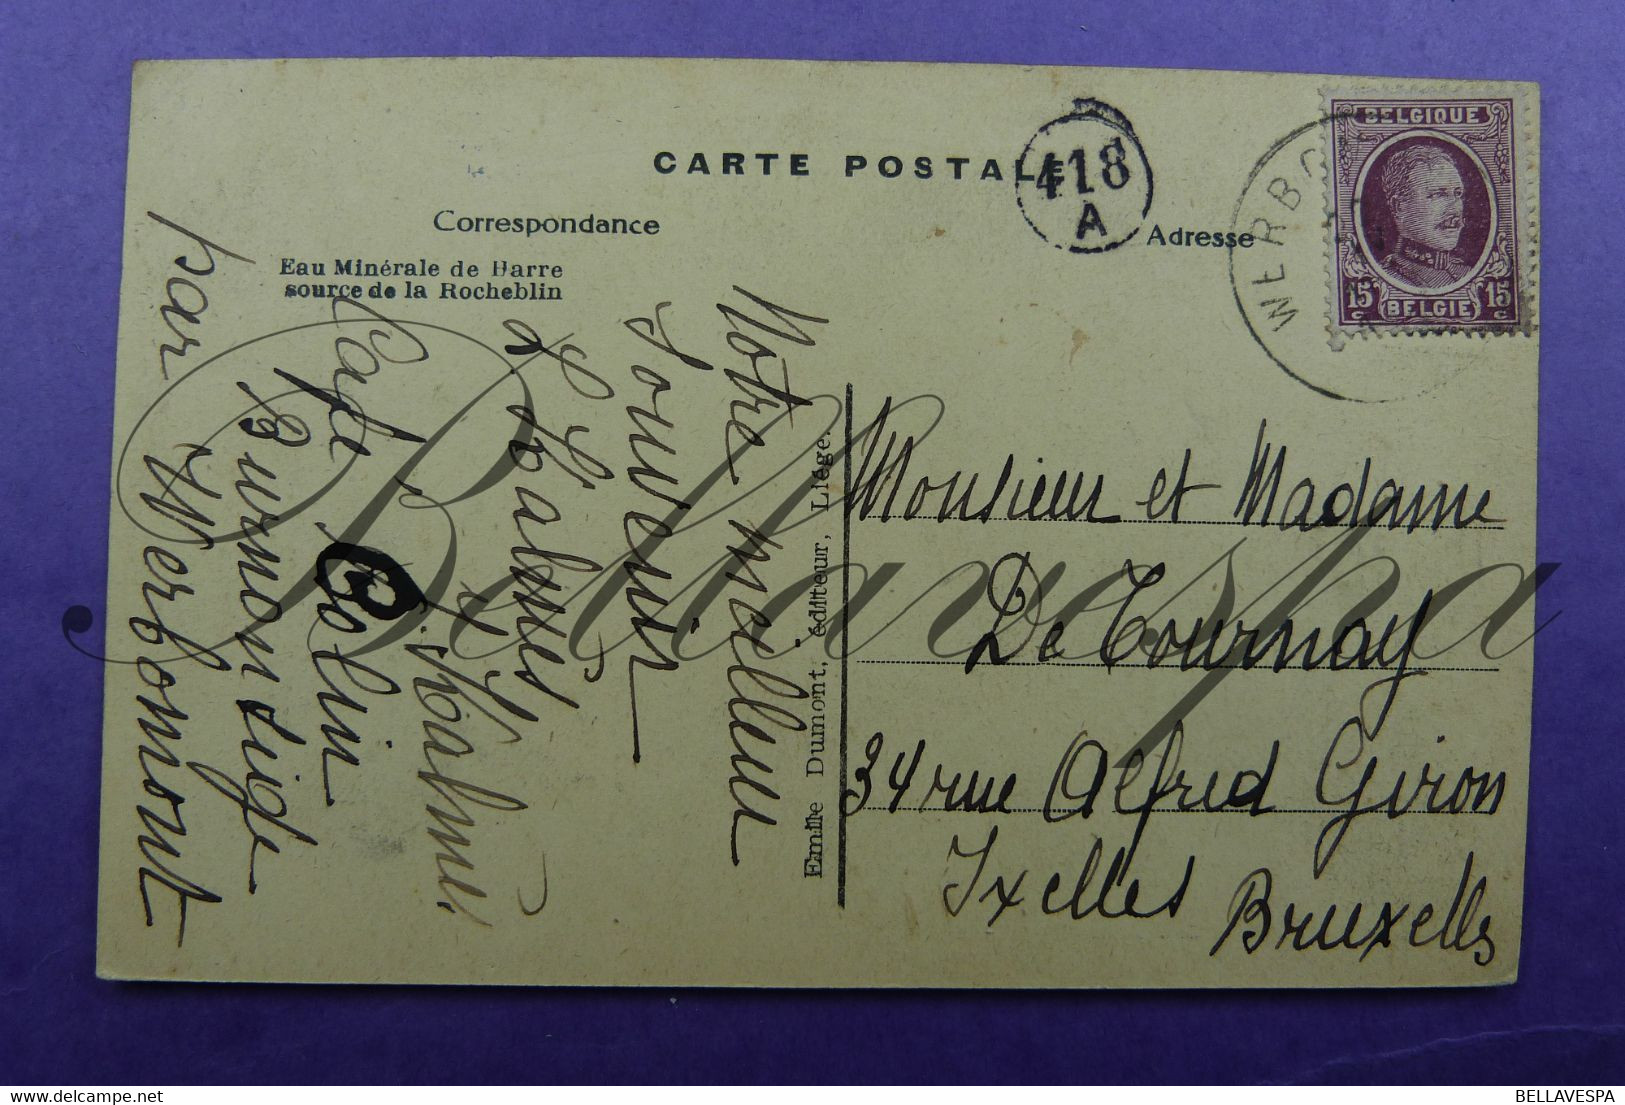 CARTE POSTALE
418
A
BELGIQUE
15 c BELGIE 15 c
WERBO
Correspondance
Adresse
Eau Minérale de Harre
source de la Rocheblin
Notre meilleur
Souvenir
L Labens
Café Bolin
Burnontige
par Werbomont
Emile Dumont, éditeur, Liége.
Monsieur et Madame
De Tournay
34 rue Alfred Giron
Ixelles
Bruxelles
Bellavespa
BELLAVESPA
delcampe.net